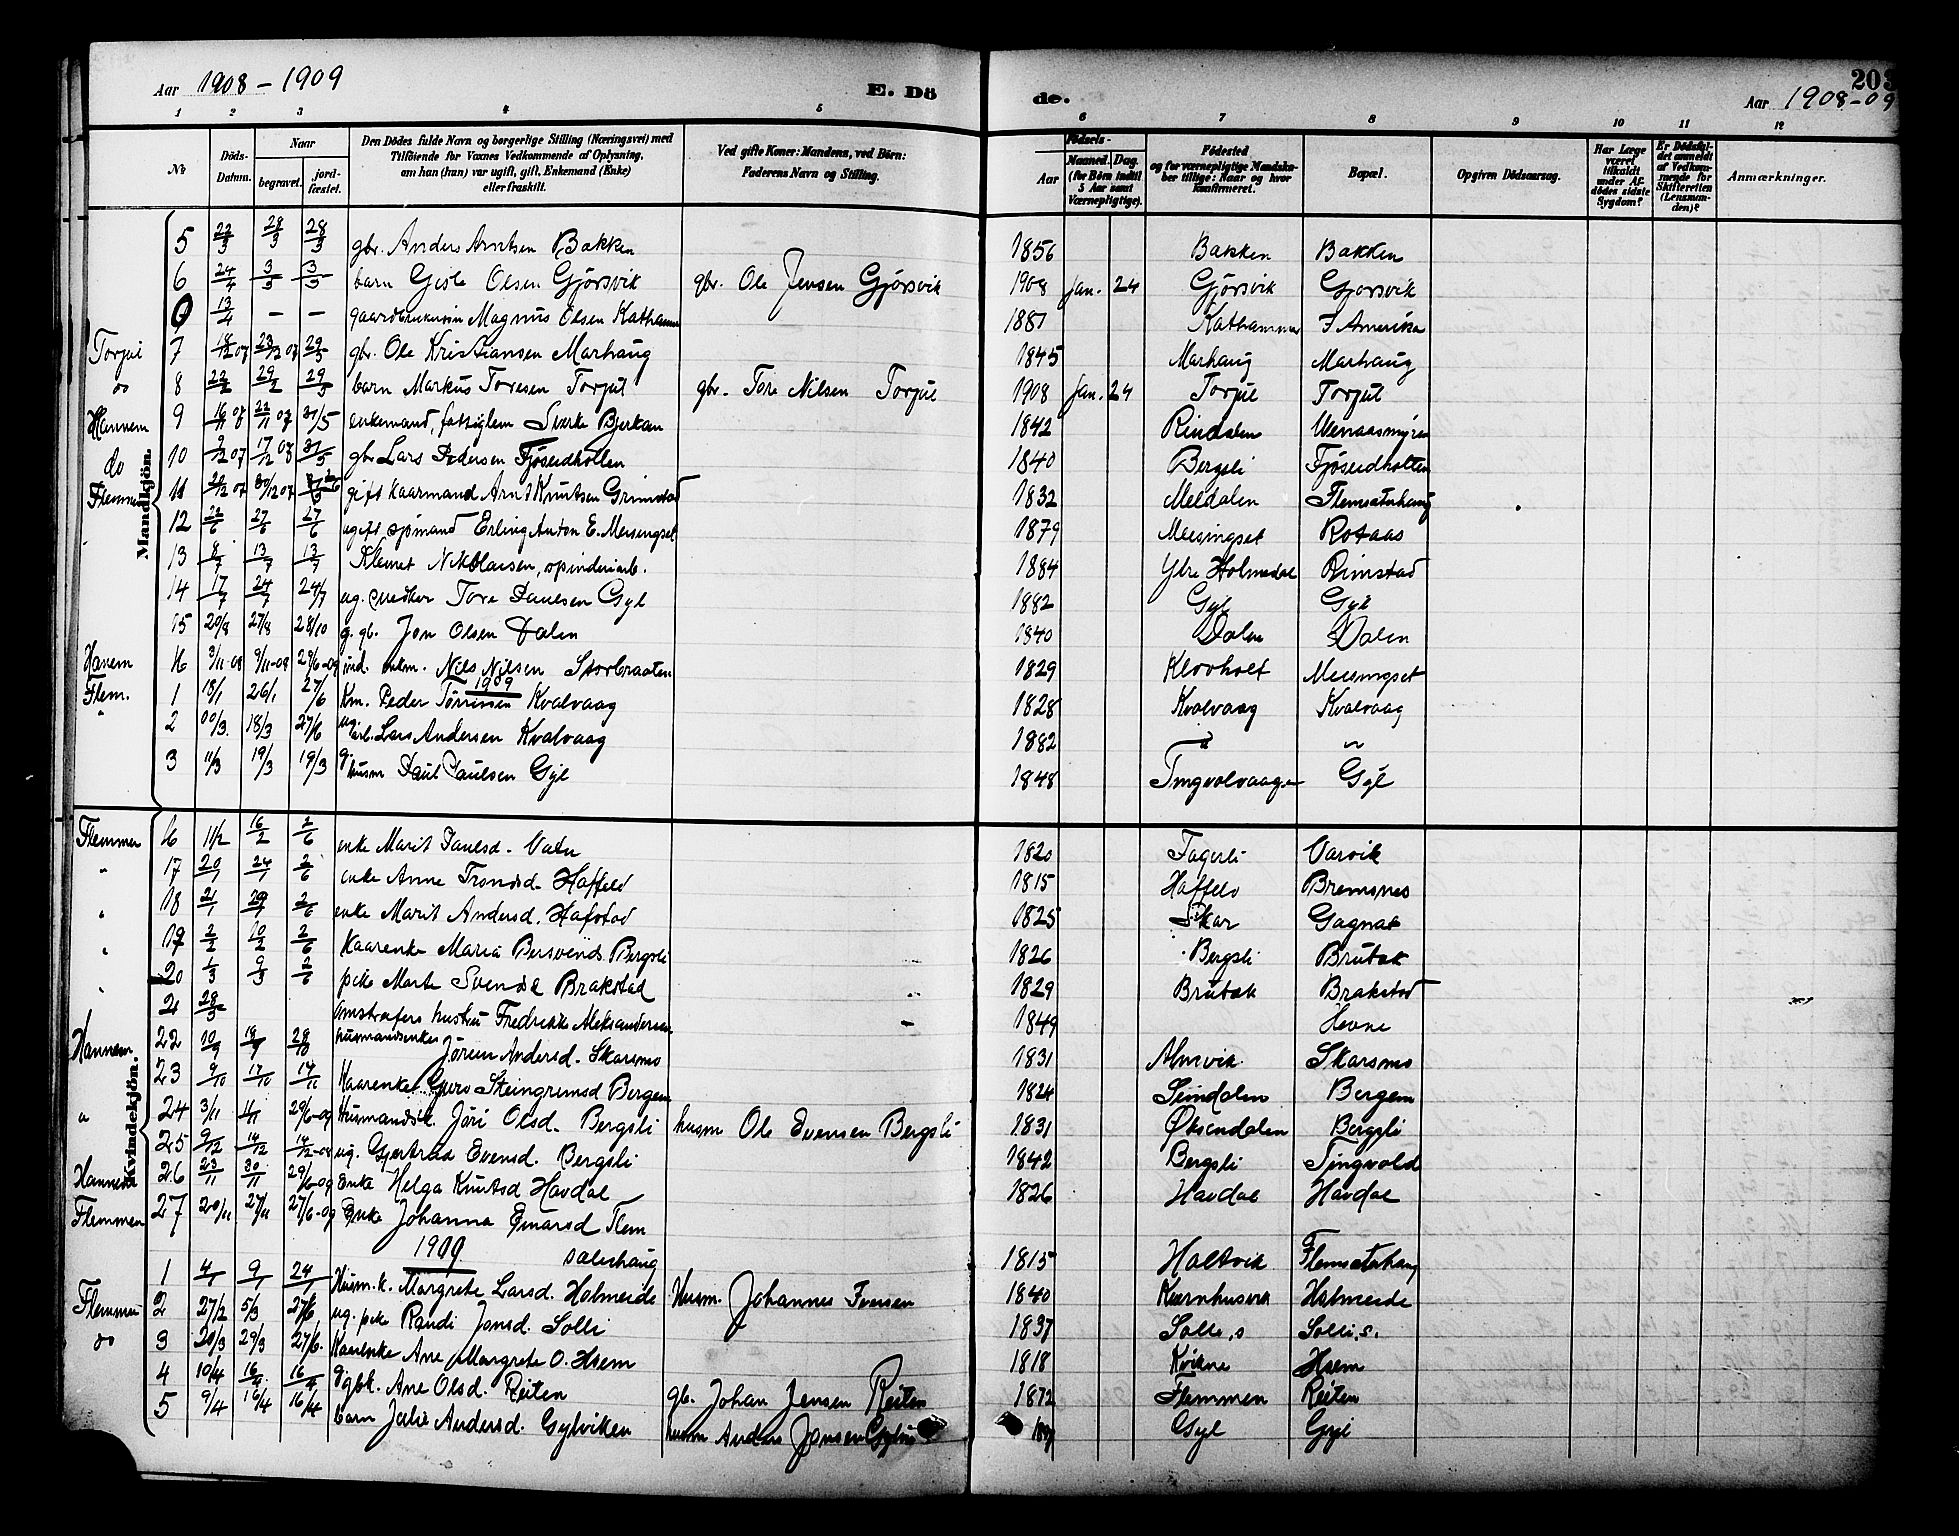 Aar 1908-1909
E. Dö
de.
203
Aar 1908-09
1 2 3 4 5 6 7 8 9 10 11 12
No
Döds-Datum.
Naar
begravet.
jord-fæstet.
Den Dödes fulde Navn og borgerlige Stilling (Næringsvei) med
Tilföiende for Voxnes Vedkommende af Oplysning,
om han (hun) var ugift, gift, Enkemand (Enke)
eller fraskilt.
Ved gifte Koner: Mandens, ved Börn:
Faderens Navn og Stilling.
Födsels-
Aar
Maaned. Dag.
(for Börn indtil
5 Aar samt
Værnepligtige).
Födested
og for værnepligtige Mandska-
ber tillige: Naar og hvor
konfirmeret.
Bopæl.
Opgiven Dödsaarsag.
Har Læge
været
tilkaldt
under Af-
dödes sidste
Sygdom?
Er Dödsfal-
det anmeldt
af Vedkom-
mende for
Skifteretten
(Lensman-
den)?
Anmærkninger.
Mandkjön.
5 22/3 28/3 28/3 gbr. Anders Arntsen Bakken 1856 Bakken Bakken
6 24/4 3/5 3/5 barn Gisle Olsen Gjörsvik gbr. Ole Jensen Gjörsvik 1908 Jan. 24 Gjörsvik Gjörsvik
0 13/4 - - Magnus Olsen Kathammer 1881 Kathammer I Amerika
Torjul 7 18/12 07 23/12 07 29/5 gbr. Ole Kristiansen Marhaug 1845 Marhaug Marhaug
do 8 22/2 29/2 29/5 barn Markus Toresen Torjul gbr. Tore Nilsen Torjul 1908 Jan. 24 Torjul Torjul
Hannem 9 16/11 07 22/11 07 31/5 enkemand, fattiglem Sverke Bjerkan 1842 Rindalen
do 10 2/12 07 17/12 07 31/5 gbr Lars Pedersen Fjöseidholten 1840 Bergsli Fjöseidholten
Flemmen 11 20/12 07 30/12 07 gift kaarmand Arnt Knutsen Grimstad 1832 Meldalen Flemsæterhaug
12 22/6 27/6 27/6 ugift spmand Erling Anton E. Meisingset 1879 Meisingset Rotaas
13 8/7 13/7 13/7 Klemet Nikolaisen, spinderiarb. 1884 Ytre Holmedal Rimstad
14 17/7 24/7 24/7 ug. snedker Tore Paulsen Gyl 1882 Gyl Gyl
15 20/8 27/8 28/10 g. gb. Jon Olsen Dalen 1840 Dalen Dalen
Hanem 16 3/11-08 9/11-08 29/6-09 ind. enkm. Nils Nilsen Storbraaten 1829 Klovholt Meisingset
1909
Flem. 1 18/1 26/1 27/6 Km. Peder Tørrissen Kvalvaag 1828 Kvalvaag Kvalvaag
" 2 18/3 27/6 ug. arb. Lars Andersen Kvalvaag 1882 " "
3 11/3 19/3 19/3 g. husm Paul Paulsen Gyl 1848 Tingvolvaagen Gyl
Kvindekjön.
Flemmen 16 11/2 16/2 2/6 enke Marit Paulsd. 1820 Fagerli Varvik
" 17 20/1 24/1 2/6 enke Anne Trondsd. Haffeld 1815 Haffeld Bremsnes
" 18 21/1 29/1 2/6 enke Marit Andersd. Hafstad 1825 Skar Gagnat
" 19 2/2 10/2 2/6 Kaarenke Maria Bersvends. Bergsli 1826 Bergsli Brubak
" 20 1/3 9/3 2/6 pike Marte Svendsd Brakstad 1829 Brubak Brakstad
21 28/5 hustru Fredrikke Aleksandersen 1849 Hevne
Hannem 22 10/9 18/9 28/10 husmandsenke Jörun Andersd. Skarsmo 1831 Almvik Skarsmo
23 9/10 17/10 14/11 Kaarenke Gjers Steingrimsd Bergem 1824 Bergem
" 24 3/11 11/11 29/6-09 Husmandsk. Jöri Olsd. Bergsli husm Ole Evensen Bergsli 1831 Öksendalen Bergsli
25 9/12 14/12 14/12-08 ug. Gjertrud Evensd. Bergsli 1842 Bergsli Tingvold
Hannem 26 23/11 30/11 29/6-09 Enke Helga Knutsd Havdal 1826 Havdal Havdal
Flemmen 27 20/11 27/11 27/6-09 Enke Johanna Einarsd Flem
sæterhaug 1815 Holtvik Flemsæterhaug
1909
1 4/1 9/1 24/1 Husm.k. Margrete Larsd. Holmeide Husm. Johannes Iversen 1840 Kvernhusvik Holmeide
Flemmen 2 27/2 5/3 27/6 ug. pike Randi Jonsd. Solli 1837 Solli, s Solli, s.
do 3 20/3 29/3 27/6. Kaarenke Ane Margrete O. Hsem 1818 Kvikne Hsem
4 10/4 16/4 16/4 g gbk. Ane Olsd. Reiten gb. Johan Jensen Reiten 1872 Flemmen Reiten
5 9/4 16/4 16/4 barn Julie Andersd. Gylviken husm Anders Jonsen Gyl Gyl